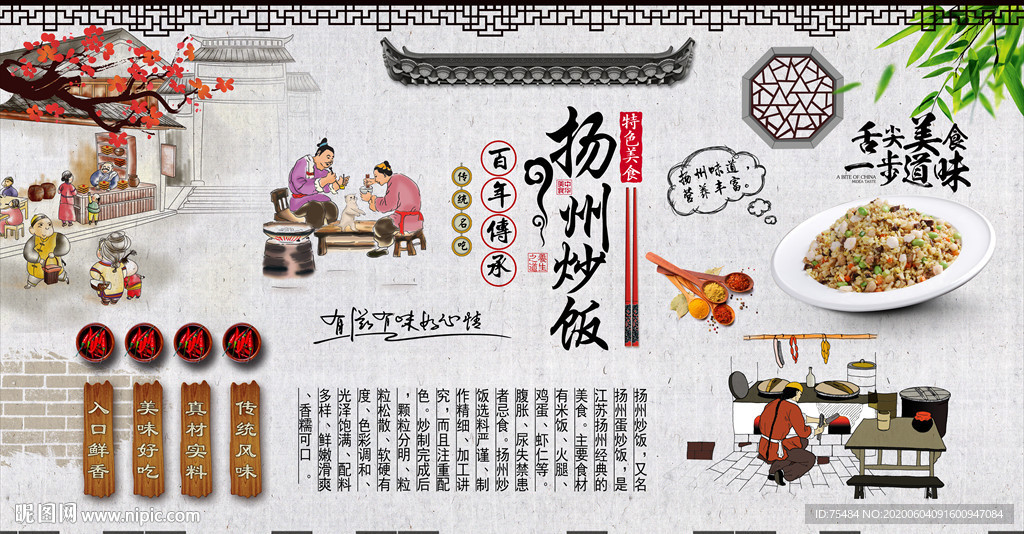 舌尖美食
一步道味
A BITE OF CHINA
特色美食
扬州炒饭
中华美食
養生之道
百年傳承
传统名吃
扬州味道,
营养丰富。
有滋有味好心情
传统风味
真材实料
美味好吃
入口鲜香
扬州炒饭,又名
扬州蛋炒饭,是
江苏扬州经典的
美食。主要食材
有米饭、火腿、
鸡蛋、虾仁等。
腹胀、尿失禁患
者忌食。扬州炒
饭选料严谨、制
作精细、加工讲
究,而且注重配
色。炒制完成后
,颗粒分明、粒
粒松散、软硬有
度、色彩调和、
光泽饱满、配料
多样、鲜嫩滑爽
、香糯可口。
昵图网 www.nipic.com
ID:75484 NO:20200604091600947084